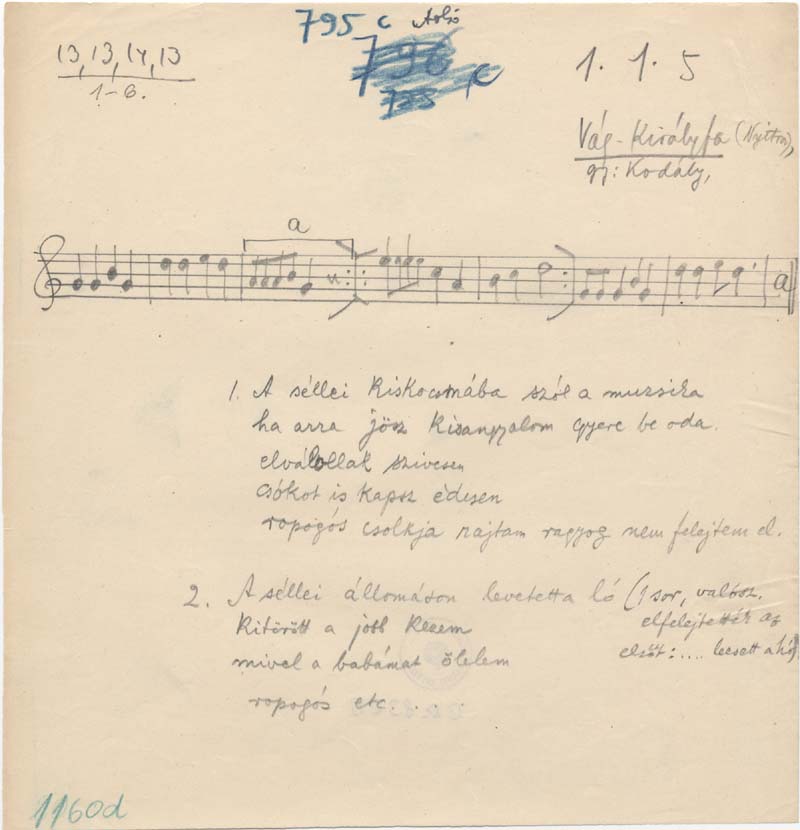 795 c Alsó
13, 13, 14, 13
1-6.
1. 1. 5
Vág-Királyfa (Nyitra),
gy: Kodály,
a
a
1. A séllei kiskocsmába szól a muzsika
ha arra jösz kisangyalom gyere be oda.
elválollak szivesen
csókot is kapsz édesen
ropogós csólkja rajtam ragyog nem felejtem el.
2. A séllei állomáson levetetta ló (1 sor, valósz.
elfelejtették az
kitörött a jobb kezem
előt: .... leesett a hó)
mivel a babámat ölelem
ropogós etc. . .
1160d